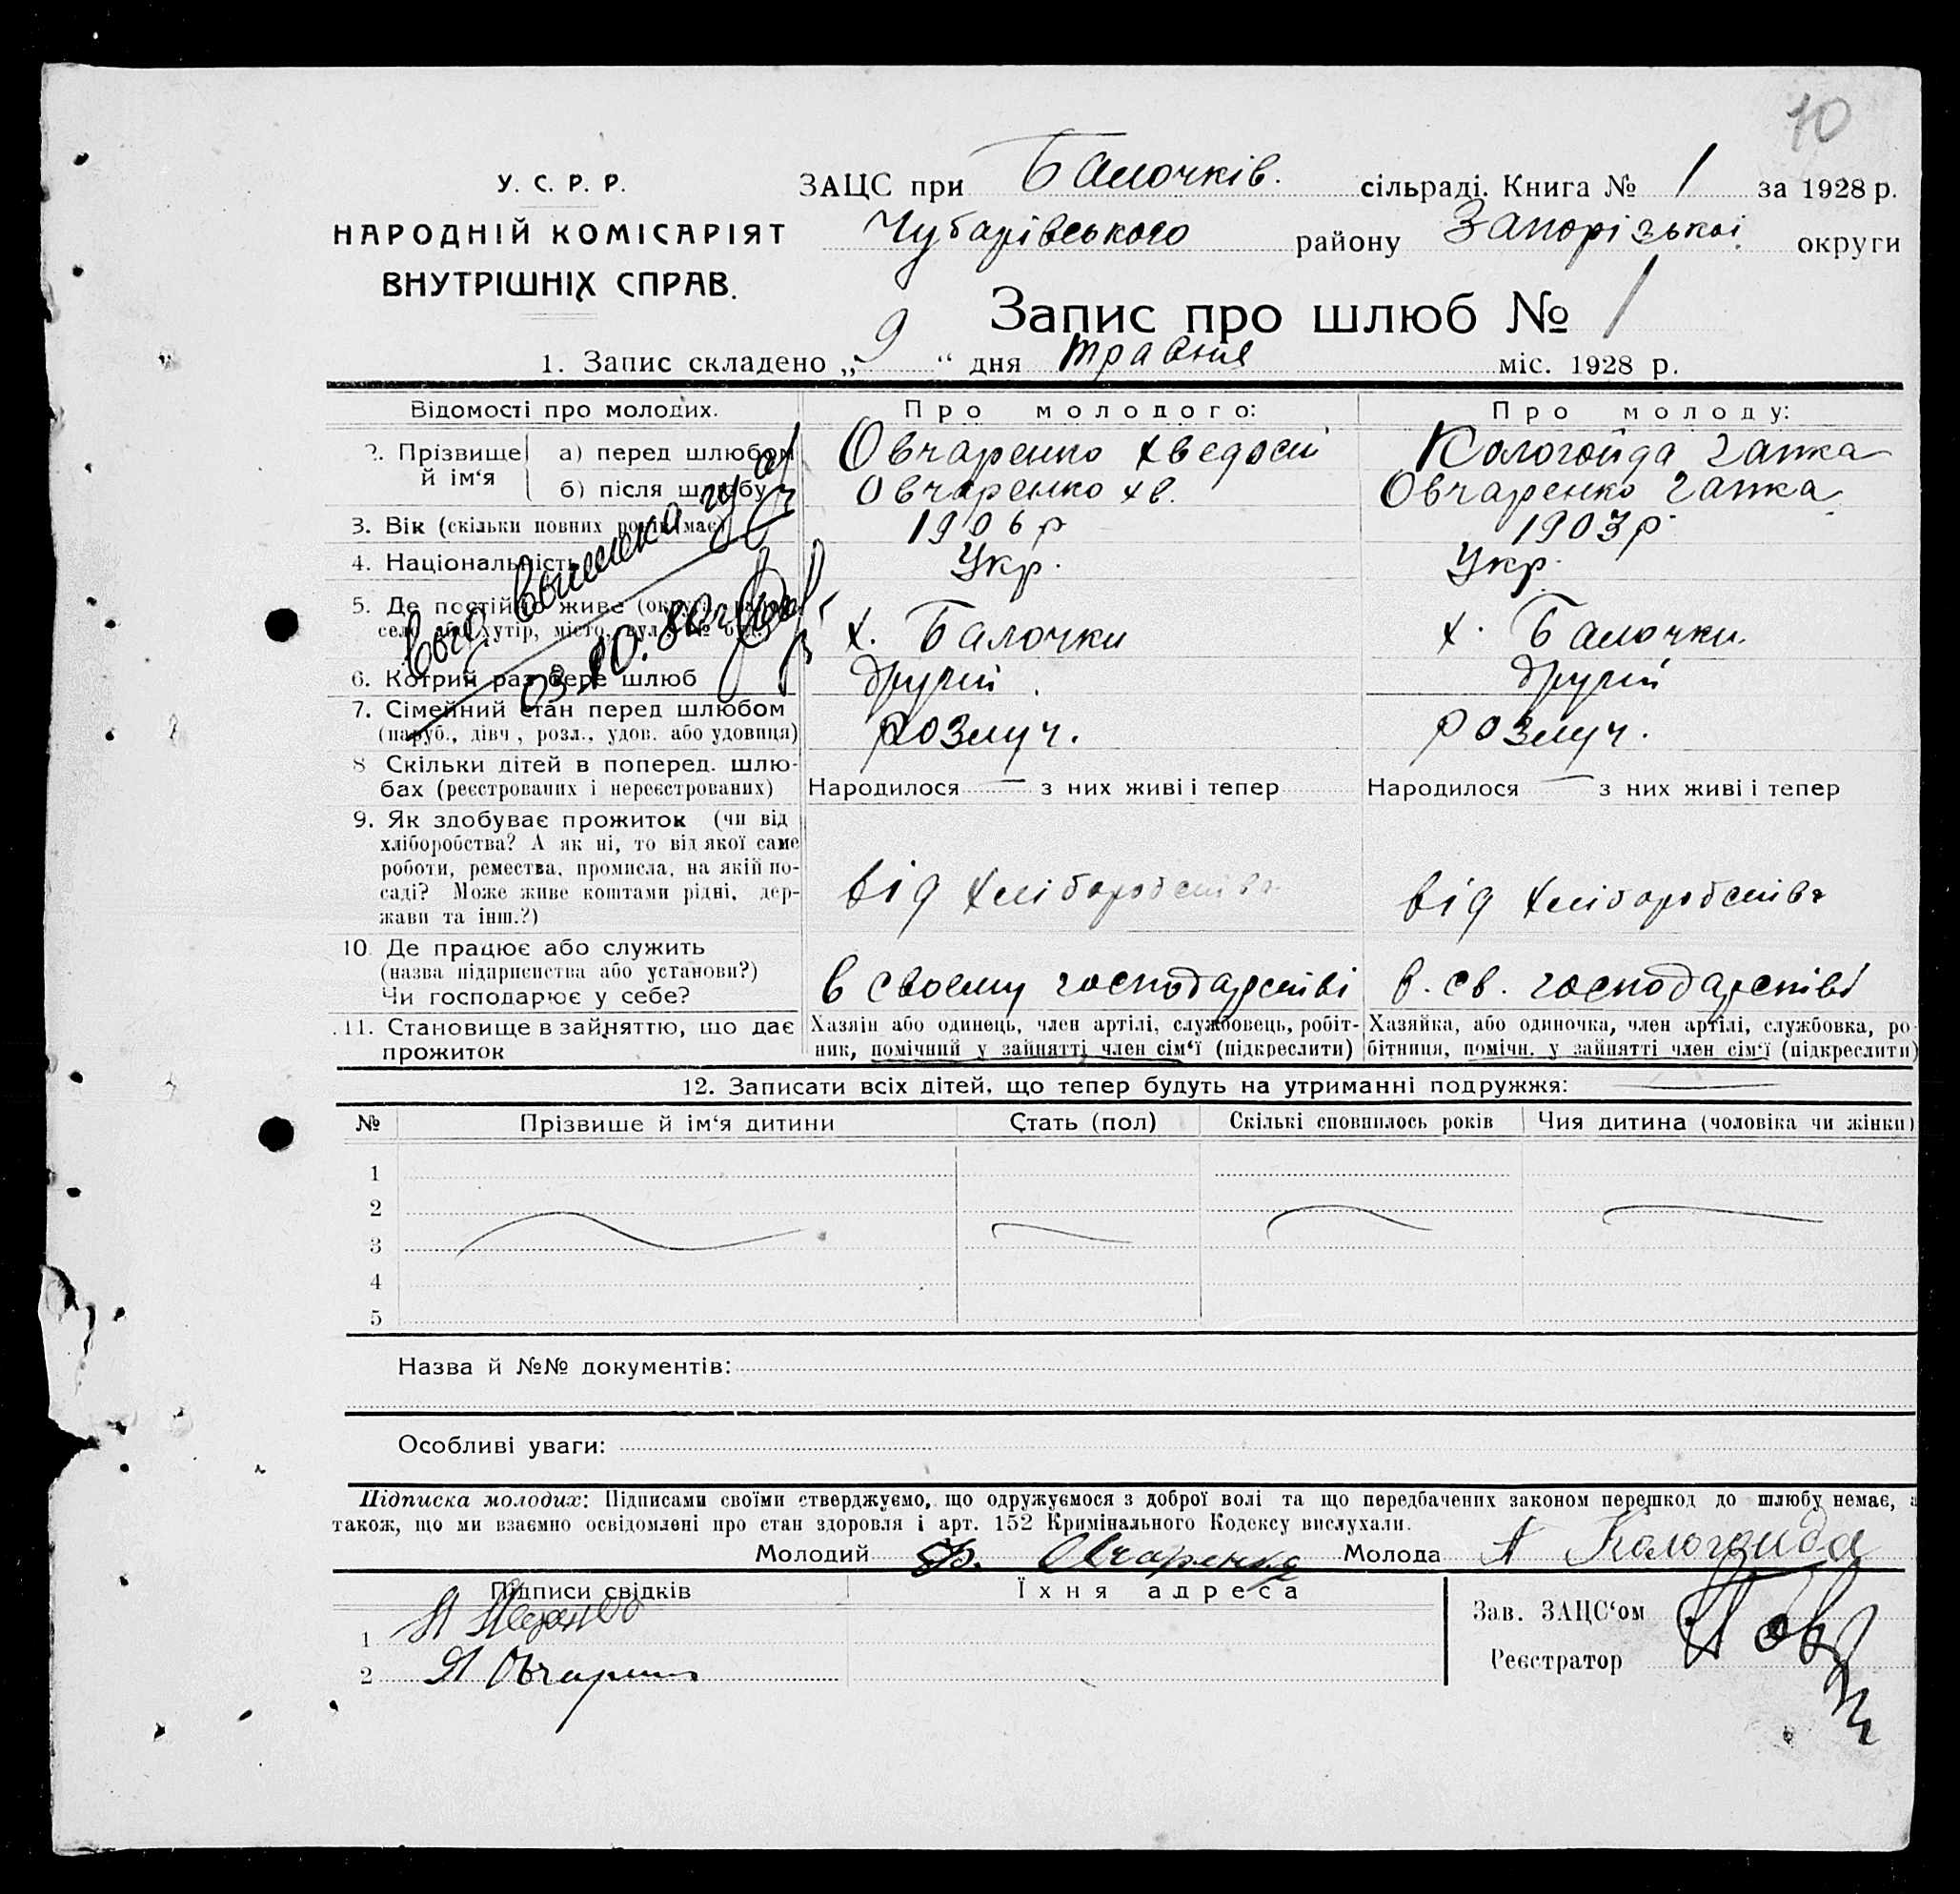 10
У. С. Р. Р.
НАРОДНІЙ КОМІСАРІЯТ
ВНУТРІШНІХ СПРАВ.
ЗАЦС при Балочків. сільраді. Книга № 1 за 1928 р.
Чубарівського району Запорізької округи
Запис про шлюб № 1
1. Запис складено „9“ дня травня міс. 1928 р.
Відомості про молодих. Про молодого: Про молоду:
2. Прізвище й ім‘я а) перед шлюбом Овчаренко Хведось Кологойда Гапка
б) після шлюбу Овчаренко Хв. Овчаренко Гапка
3. Вік (скільки повних років має) 1906 р 1903 р.
4. Національність Укр. Укр.
5. Де постійно живе (округа, район,
село або хутір, місто, вул., № буд.) х. Балочки х. Балочки.
6. Котрий раз бере шлюб другий другий
7. Сімейний стан перед шлюбом
(паруб., дівч., розл., удов. або удовиця) розлуч. розлуч.
8 Скільки дітей в поперед. шлю-
бах (реєстрованих і нереєстрованих) Народилося — з них живі і тепер Народилося — з них живі і тепер
9. Як здобуває прожиток (чи від
хліборобства? А як ні, то від якої саме
роботи, ремества, промисла, на якій по-
саді? Може живе коштами рідні, дер-
жави та інш.?) від хліборобства від хліборобства
10. Де працює або служить
(назва підприємства або установи?)
Чи господарює у себе? в своему господарстві в. св. господарстві
11. Становище в зайняттю, що дає
прожиток
Хазяїн або одинець, член артілі, службовець, робіт-
ник, помічний у зайнятті член сім‘ї (підкреслити)
Хазяйка, або одиночка, член артілі, службовка, ро-
бітниця, помічн. у зайнятті член сім‘ї (підкреслити)
03.10.80
12. Записати всіх дітей, що тепер будуть на утриманні подружжя: —
№ Прізвище й ім‘я дитини Стать (пол) Скількі сповнилось років Чия дитина (чоловіка чи жінки)
1
2
3
4
5
Назва й №№ документів:
Особливі уваги:
Підписка молодих: Підписами своїми стверджуємо, що одружуємося з доброї волі та що передбачених законом перешкод до шлюбу немає, а
також, що ми взаємно освідомлені про стан здоровля і арт. 152 Кримінального Кодексу вислухали.
Молодий Ф. Овчаренко Молода А Кологойда
Підписи свідків Їхня адреса
1
2
Зав. ЗАЦС‘ом
Реєстратор